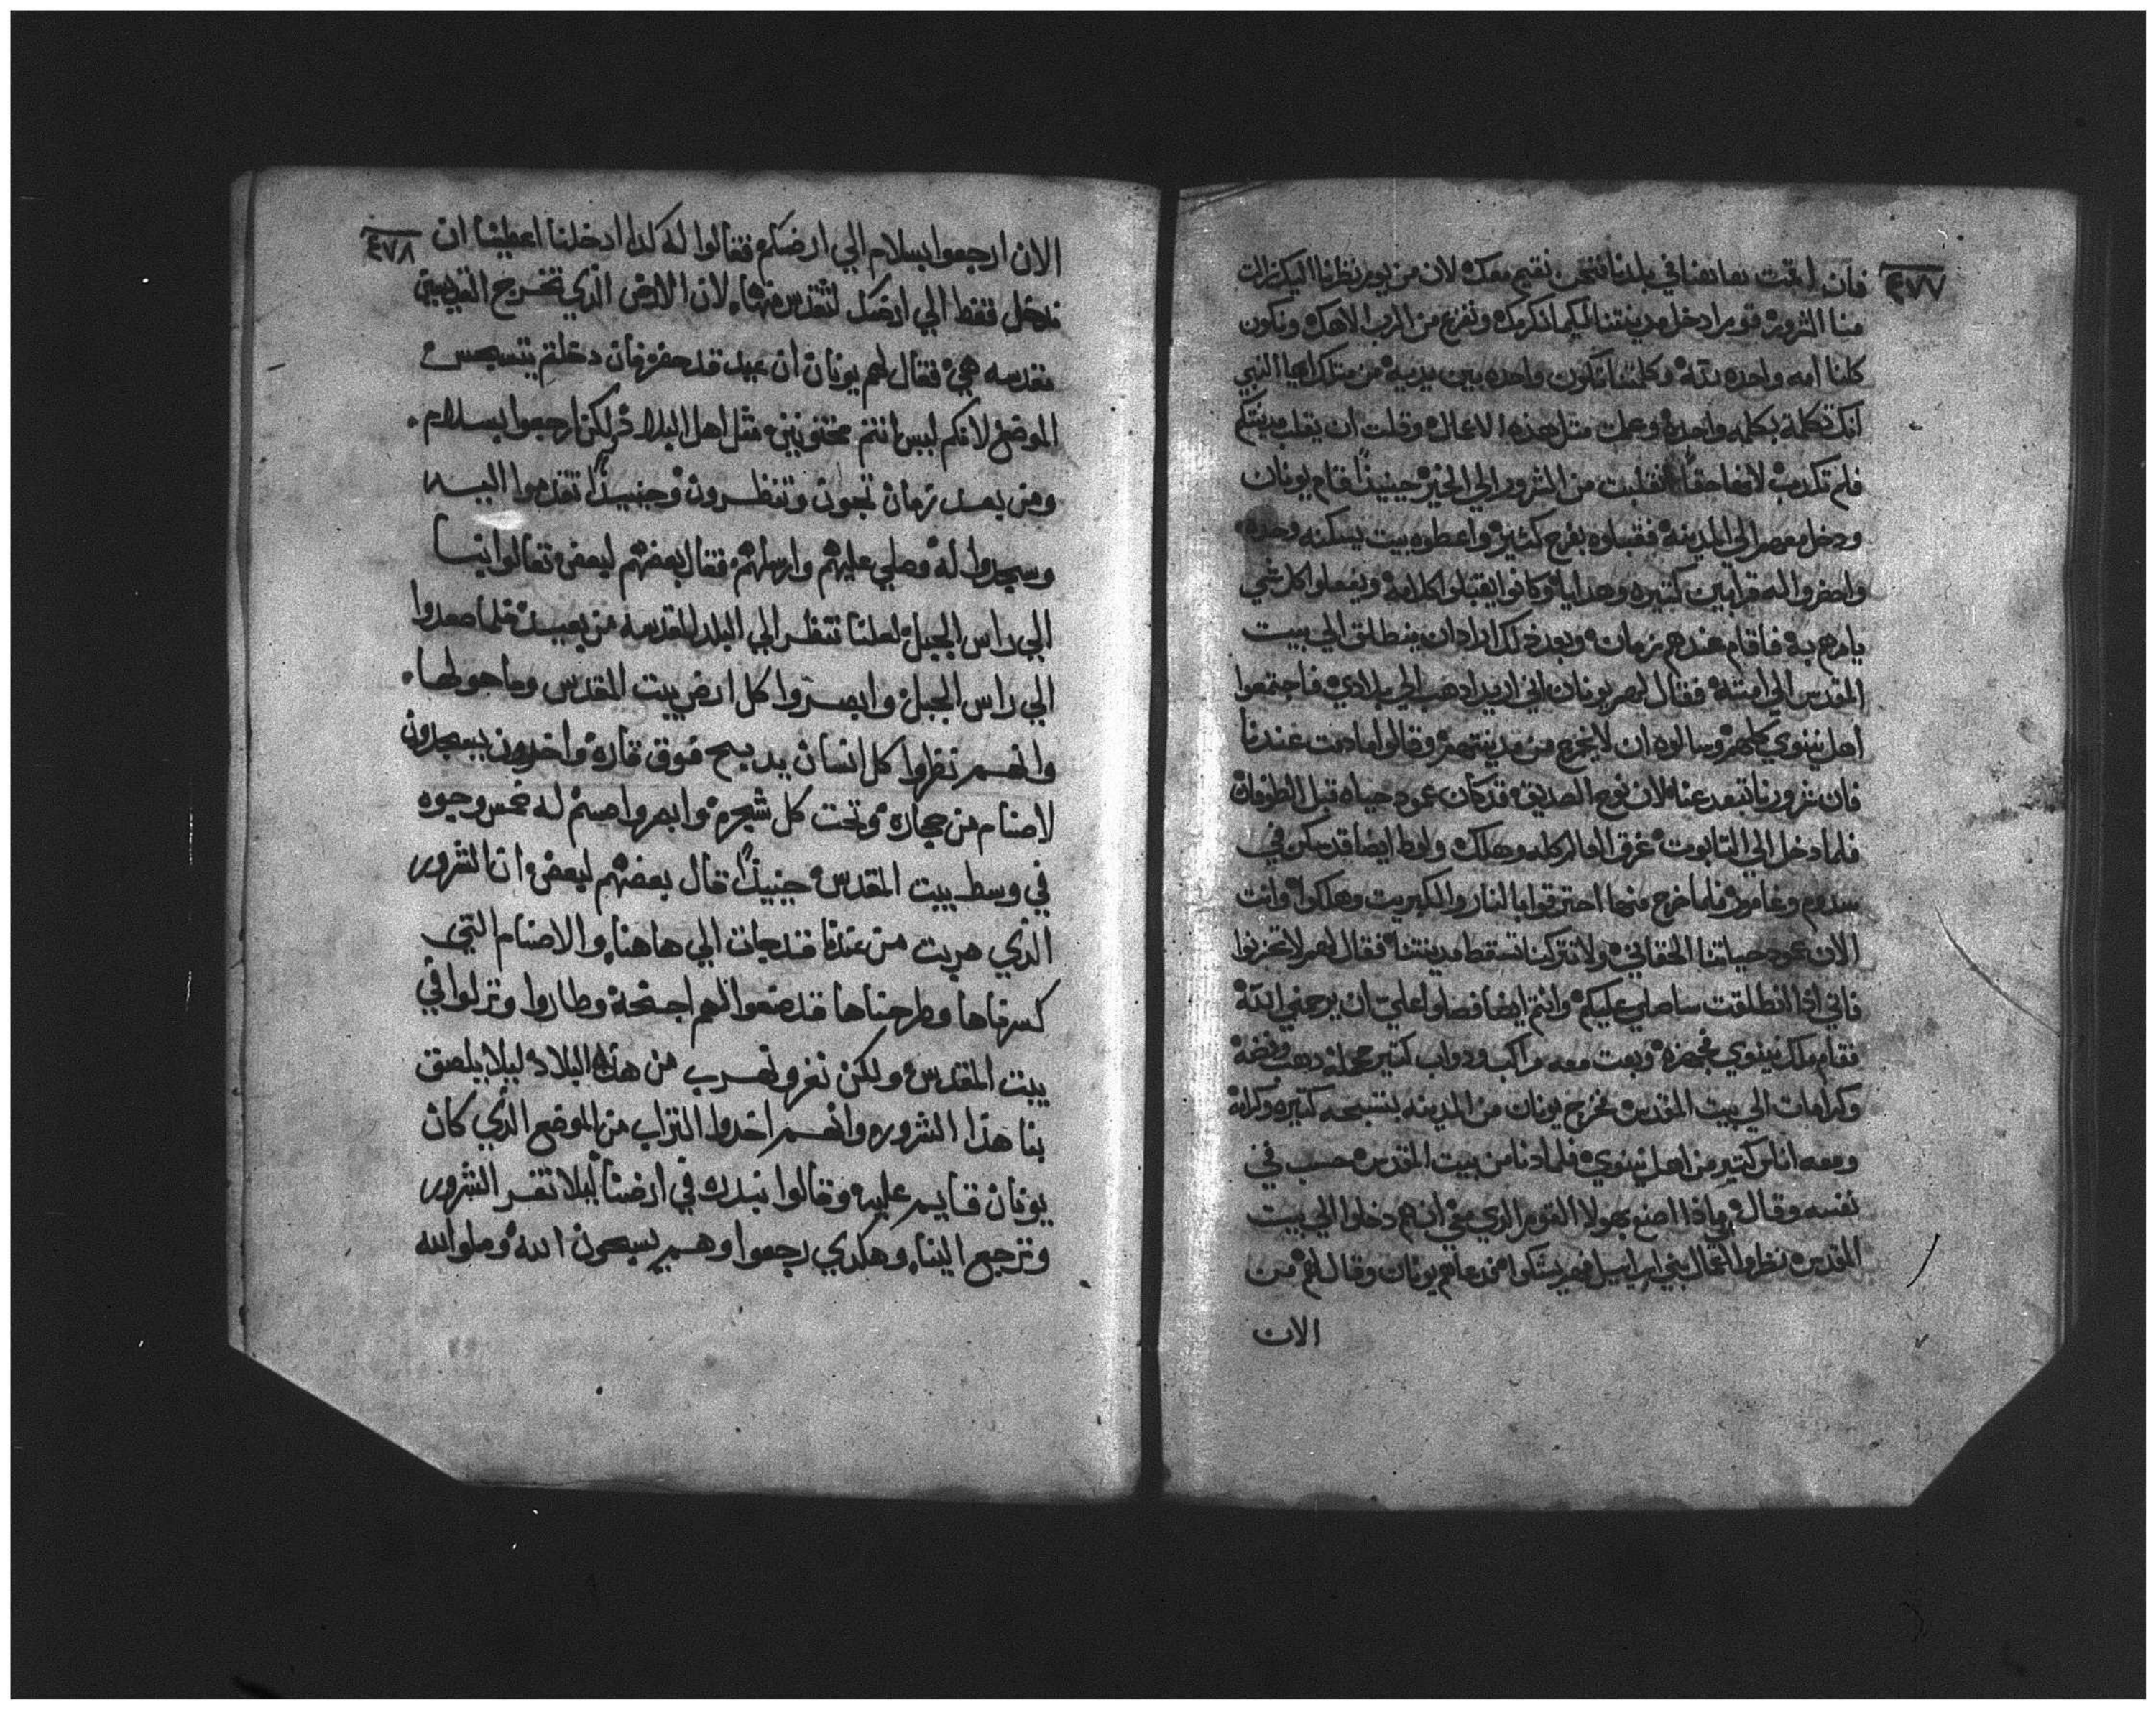 ٤٧٧
فان اقمت معنا في بلدنا فنحن نقيم معك لان من يوم نظرنا اليك زالت
منا الشرور قوم ادخل مدينتنا لكيما نكرمك ونفزع من الرب الاهك ونكون
كلنا امه واحده لله وكلمتنا تكون واحده بين يديه من متلك ايها النبي
انك تكلمة بكلمه واحده وعملت متل هده الاعمال وقلت ان يقلب مدينتكم
فلم تكدب لانها حقا انقلبت من الشرور الي الخير حينيدا قام يونان
ودخل معهم الي المدينة فقبلوه بفرح كثير واعطوه بيت يسكنه وحده
واحضروا له قرابين كتيره وهدايا وكانوا يقبلوا كلامه ويفعلوا كل شي
يامرهم به فاقام عندهم زمان وبعد دلك اراد ان ينطلق الي بيت
المقدس الي امته فقال لهم يونان اني اريد ادهب الي بلادي فاجتمعوا
اهل نينوي كلهم وسالوه ان لا يخرج من مدينتهم وقالوا ما دمت عندنا
فان شرورنا تبعد عنا لان نوح الصديق قد كان عمود حياه قبل الطوفان
فلما دخل الي التابوت غرق العالم كله وهلك ولوط ايضا قد سكن في
سدوم وغامور فلما خرج منها احترقوا بالنار والكبريت وهلكوا وانت
الان عمود حياتنا الحقاني ولا تتركنا تسقط مدينتنا فقال لهم لا تحزنوا
فاني ادا انطلقت ساصلي عليكم وانتم ايضا فصلوا علي ان يرحمني الله
فقام ملك نينوي فجهزه وبعت معه مراكب ودواب كتير محمله دهب وفضة
وكرامات الي بيت المقدس فخرج يونان من المدينه بتسبحه كتيره وكرامه
ومعه اناس كتير من اهل نينوي فلما دنا من بيت المقدس حسب في
نفسه وقال مادا اصنع بهولا القوم الدي معي ان هم دخلوا الي بيت
المقدس نظروا اعمال بني اسراييل فهم يشكوا فدعاهم يونان وقال لهم من
الان
٤٧٨
الان ارجعوا بسلام الي ارضكم فقالوا له كدا ادخلنا اعطينا ان
ندخل فقط الي ارضك لنتقدس منها لان الارض الذي تخرج القديسين
مقدسه هي فقال لهم يونان ان عيد قد حضر فان دخلتم يتسجس
الموضع لانكم ليس انتم مختونين متل اهل البلاد ولكن ارجعوا بسلام
ومن بعد زمان تجون وتنظرون وحينيدا تقدموا اليه
وسجدوا له وصلي عليهم وارسلهم فقال بعضهم لبعض تعالوا بنا
الي راس الجبل لعلنا ننظر الي البلد المقدسه من بعيد فلما صعدوا
الي راس الجبل وابصروا كل ارض بيت المقدس وما حولها
وانهم نظروا كل انسان يدبح فوق قاره واخرون يسجدون
لاصنام من حجاره وتحت كل شجره وابصروا صنم له خمس وجوه
في وسط بيت المقدس حينيدا قال بعضهم لبعض ان الشرور
الذي هربت من عندنا قد جات الي هاهنا والاصنام التي
كسرناها وطرحناها قد صنعوا لهم اجنحة وطاروا ونزلوا في
بيت المقدس ولكن نفر ونهرب من هده البلاد ليلا يلصق
بنا هذا الشرور وانهم اخدوا التراب من الموضع الذي كان
يونان قايم عليه وقالوا نبدره في ارضنا ليلا تفر الشرور
وترجع الينا وهكدي رجعوا وهم يسبحون الله وصلوا لله